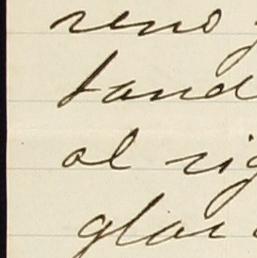 reno
tand
al rig
glor